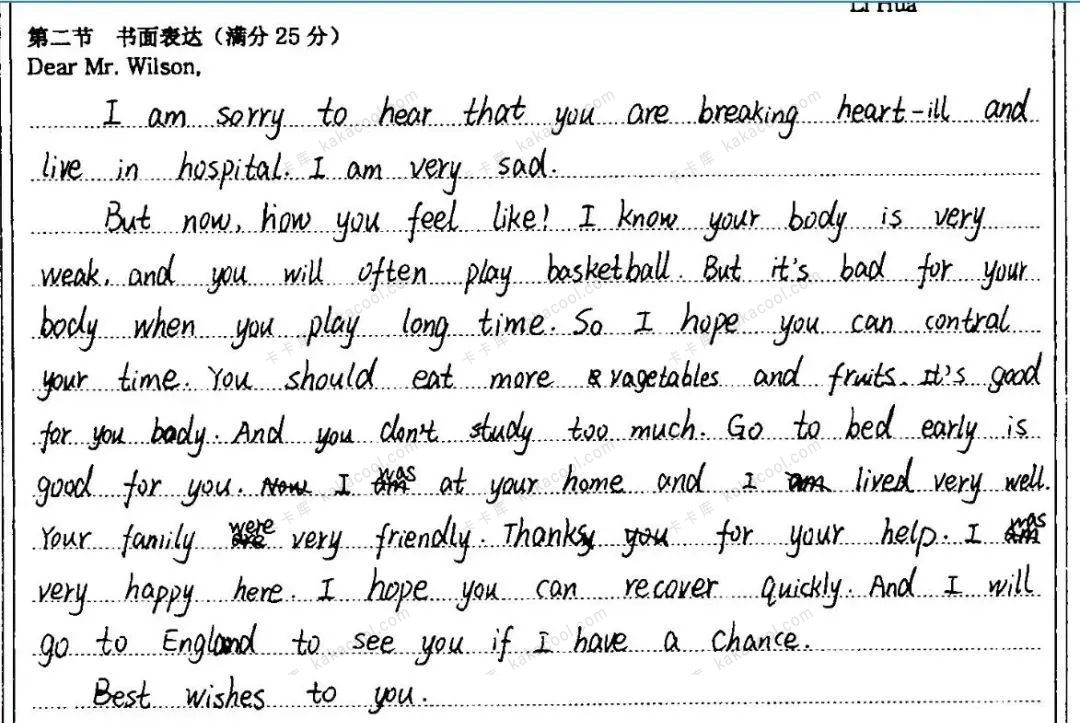 Li Hua
第二节 书面表达（满分 25 分）
Dear Mr. Wilson,
I am sorry to hear that you are breaking heart-ill and
live in hospital. I am very sad.
But now, how you feel like! I know your body is very
weak, and you will often play basketball. But it's bad for your
body when you play long time. So I hope you can contral
your time. You should eat more vagetables and fruits. It's good
for you body. And you don't study too much. Go to bed early is
good for you. Now I am was at your home and I am lived very well.
Your family are were very friendly. Thanks you for your help. I am was
very happy here. I hope you can recover quickly. And I will
go to England to see you if I have a chance.
Best wishes to you.
卡卡库 kakacool.com